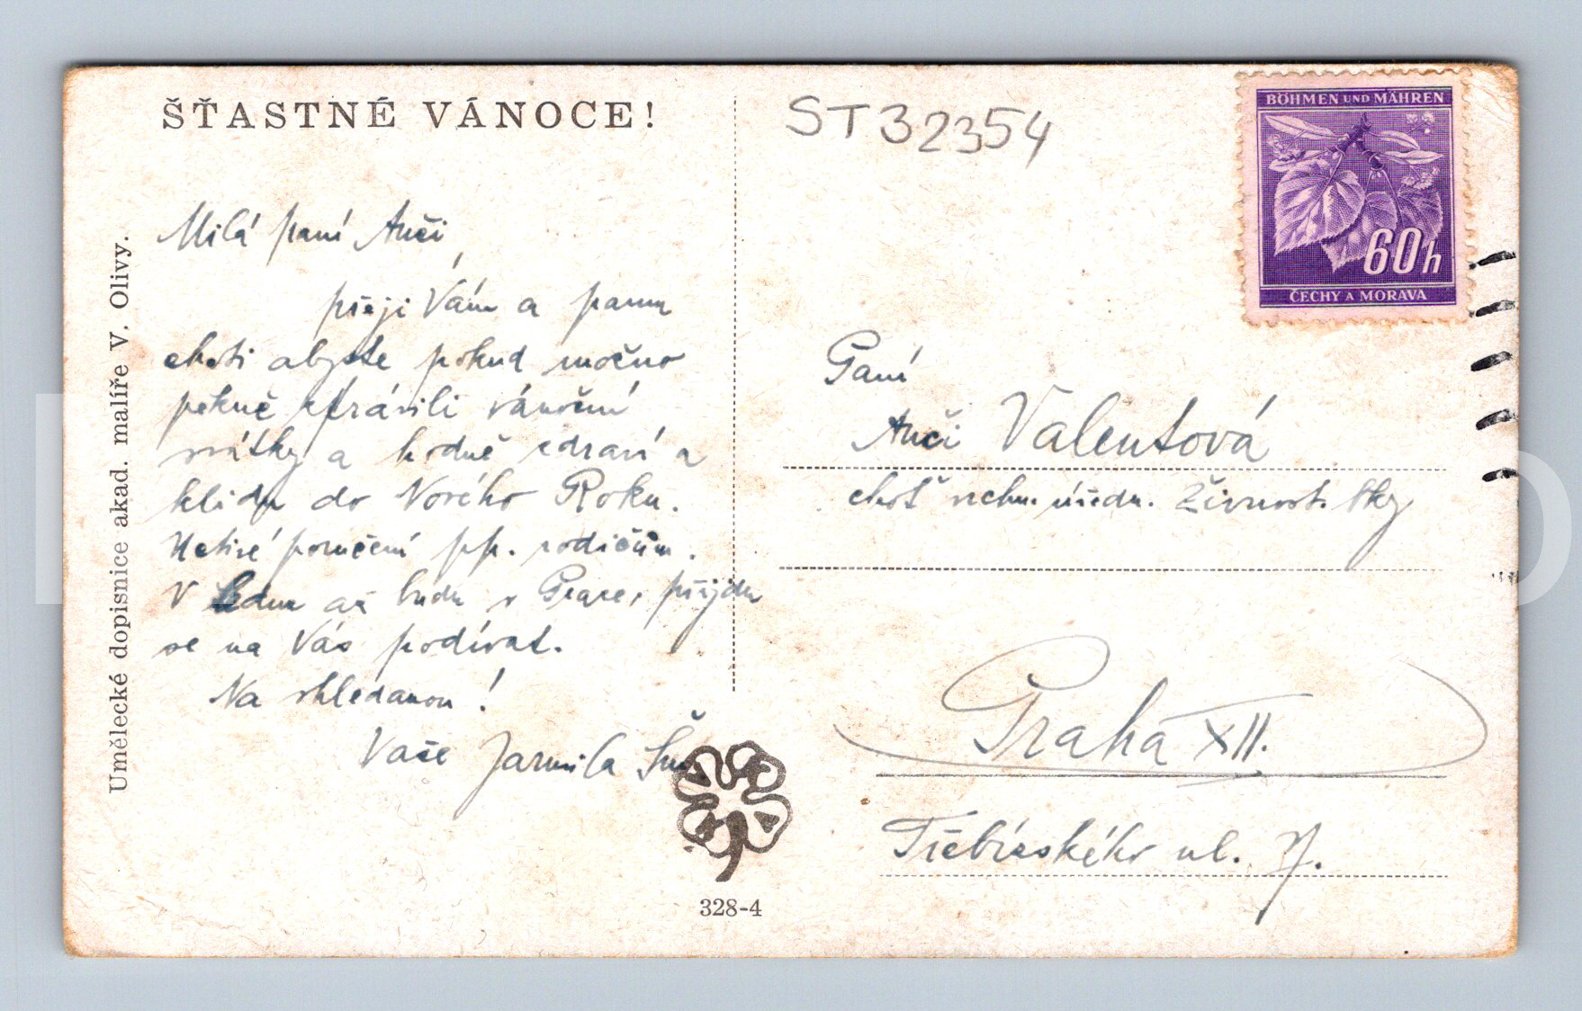 ŠŤASTNÉ VÁNOCE!
ST32354
BÖHMEN UND MÄHREN
60h
ČECHY A MORAVA
Umělecké dopisnice akad. malíře V. Olivy.
Milá paní Anči,
přeji Vám a panu
choti abyste pokud možno
pěkně strávili vánoční
svátky a hodně zdraví a
klidu do Nového Roku.
Uctivé poručení pp. rodičům.
V lednu až budu v Praze, přijdu
se na Vás podívat.
Na shledanou!
Vaše Jarmila
328-4
Paní
Anči Valentová
choť vrchn. úředn. Živnost. bky
Praha XII.
Třebízského ul. 7.